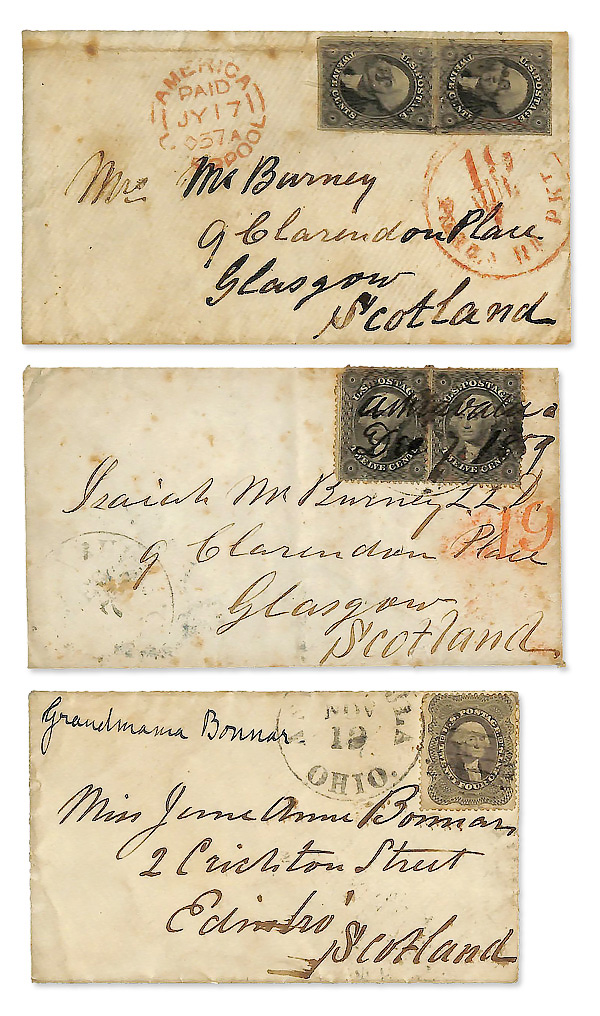 AMERICA
PAID
JY 17
U.S. POSTAGE
TWELVE CENTS
U.S. POSTAGE
TWELVE CENTS
Mrs Mc Burney
9 Clarendon Place
Glasgow
Scotland
U.S. POSTAGE
TWELVE CENTS
U.S. POSTAGE
TWELVE CENTS
19
Isaiah Mc Burney L.L.D.
9 Clarendon Place
Glasgow
Scotland
Grandmama Bonnar
NOV
19
OHIO.
U.S. POSTAGE
Miss Jeme Anne Bonnar
2 Crichton Street
Edinbro'
Scotland